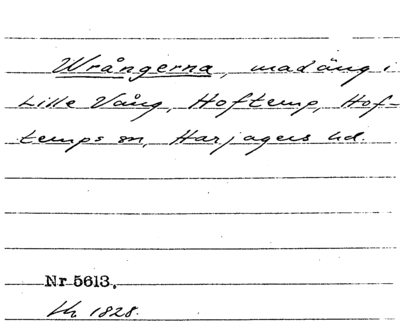 Wrångerna, madäng i
Lille Vång, Hoftemp, Hof-
temps sn, Harjagers hd.
Nr 5613.
1828.